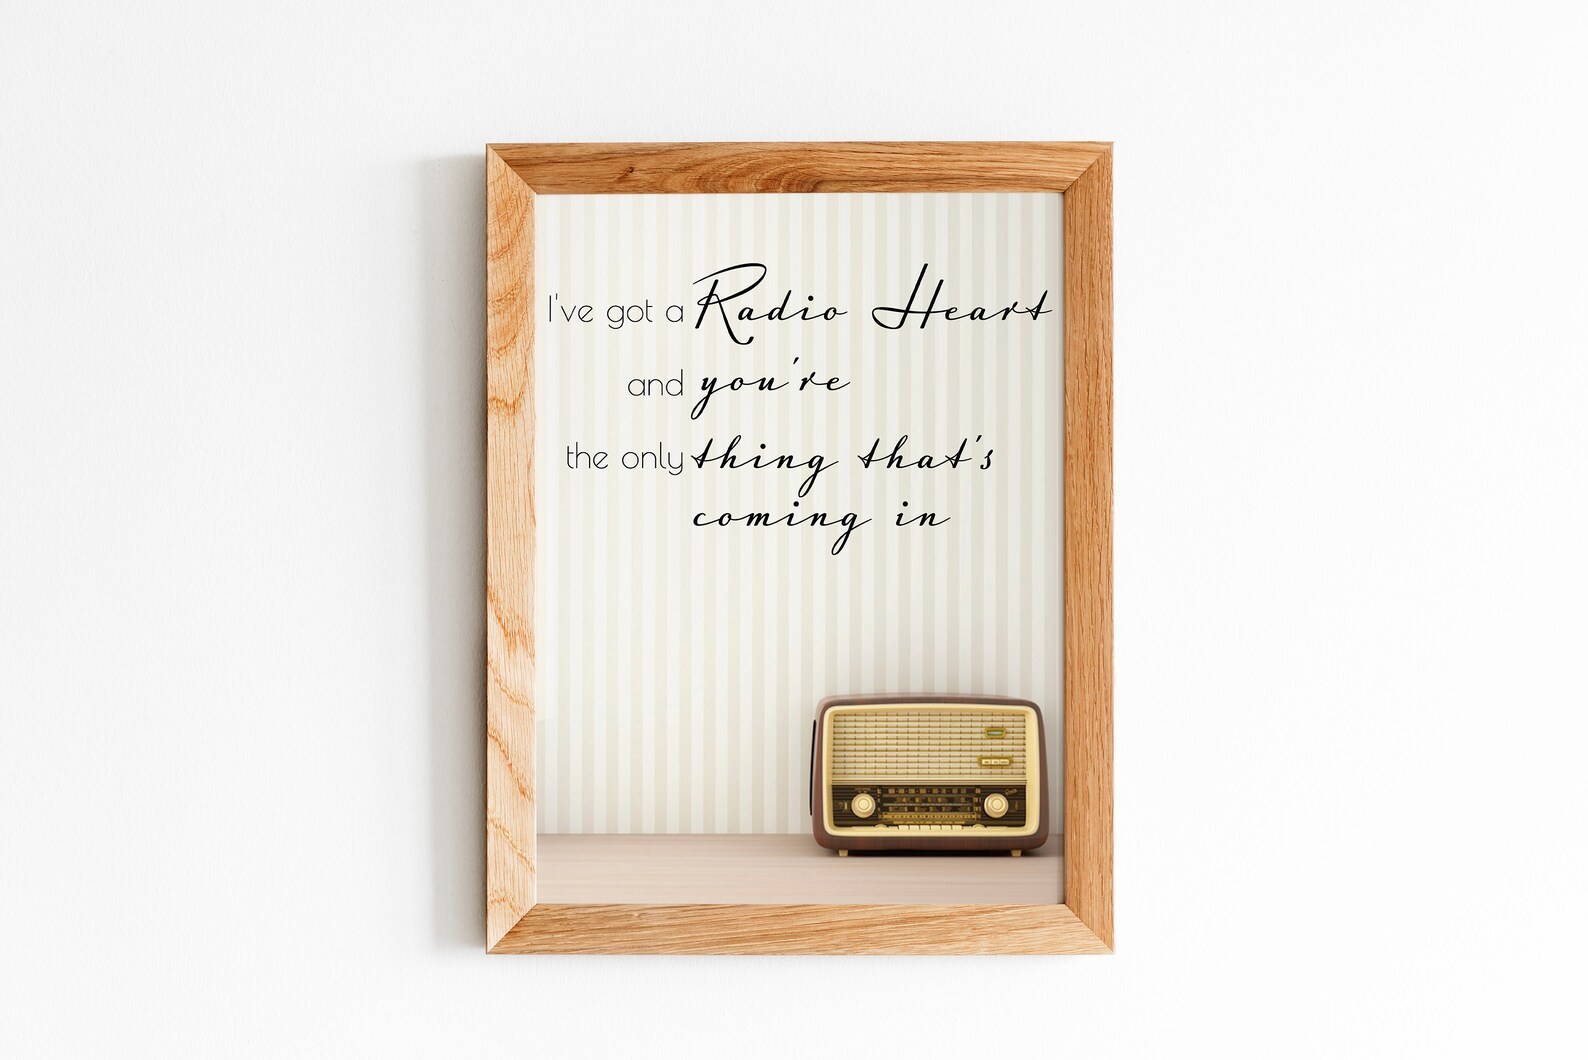 I've got a Radio Heart
and you're
the only thing that's
coming in